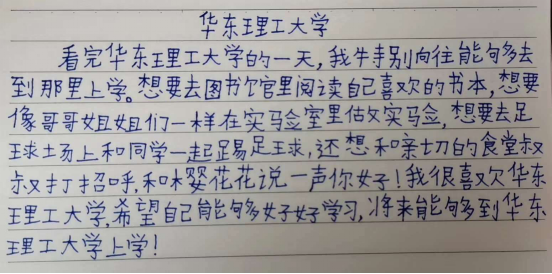 华东理工大学
看完华东理工大学的一天,我特别向往能够去
到那里上学。想要去图书馆里阅读自己喜欢的书本,想要
像哥哥姐姐们一样在实验室里做实验,想要去足
球场上和同学一起踢足球,还想和亲切的食堂叔
叔打招呼,和樱花花说一声你好!我很喜欢华东
理工大学,希望自己能够好好学习,将来能够到华东
理工大学上学!